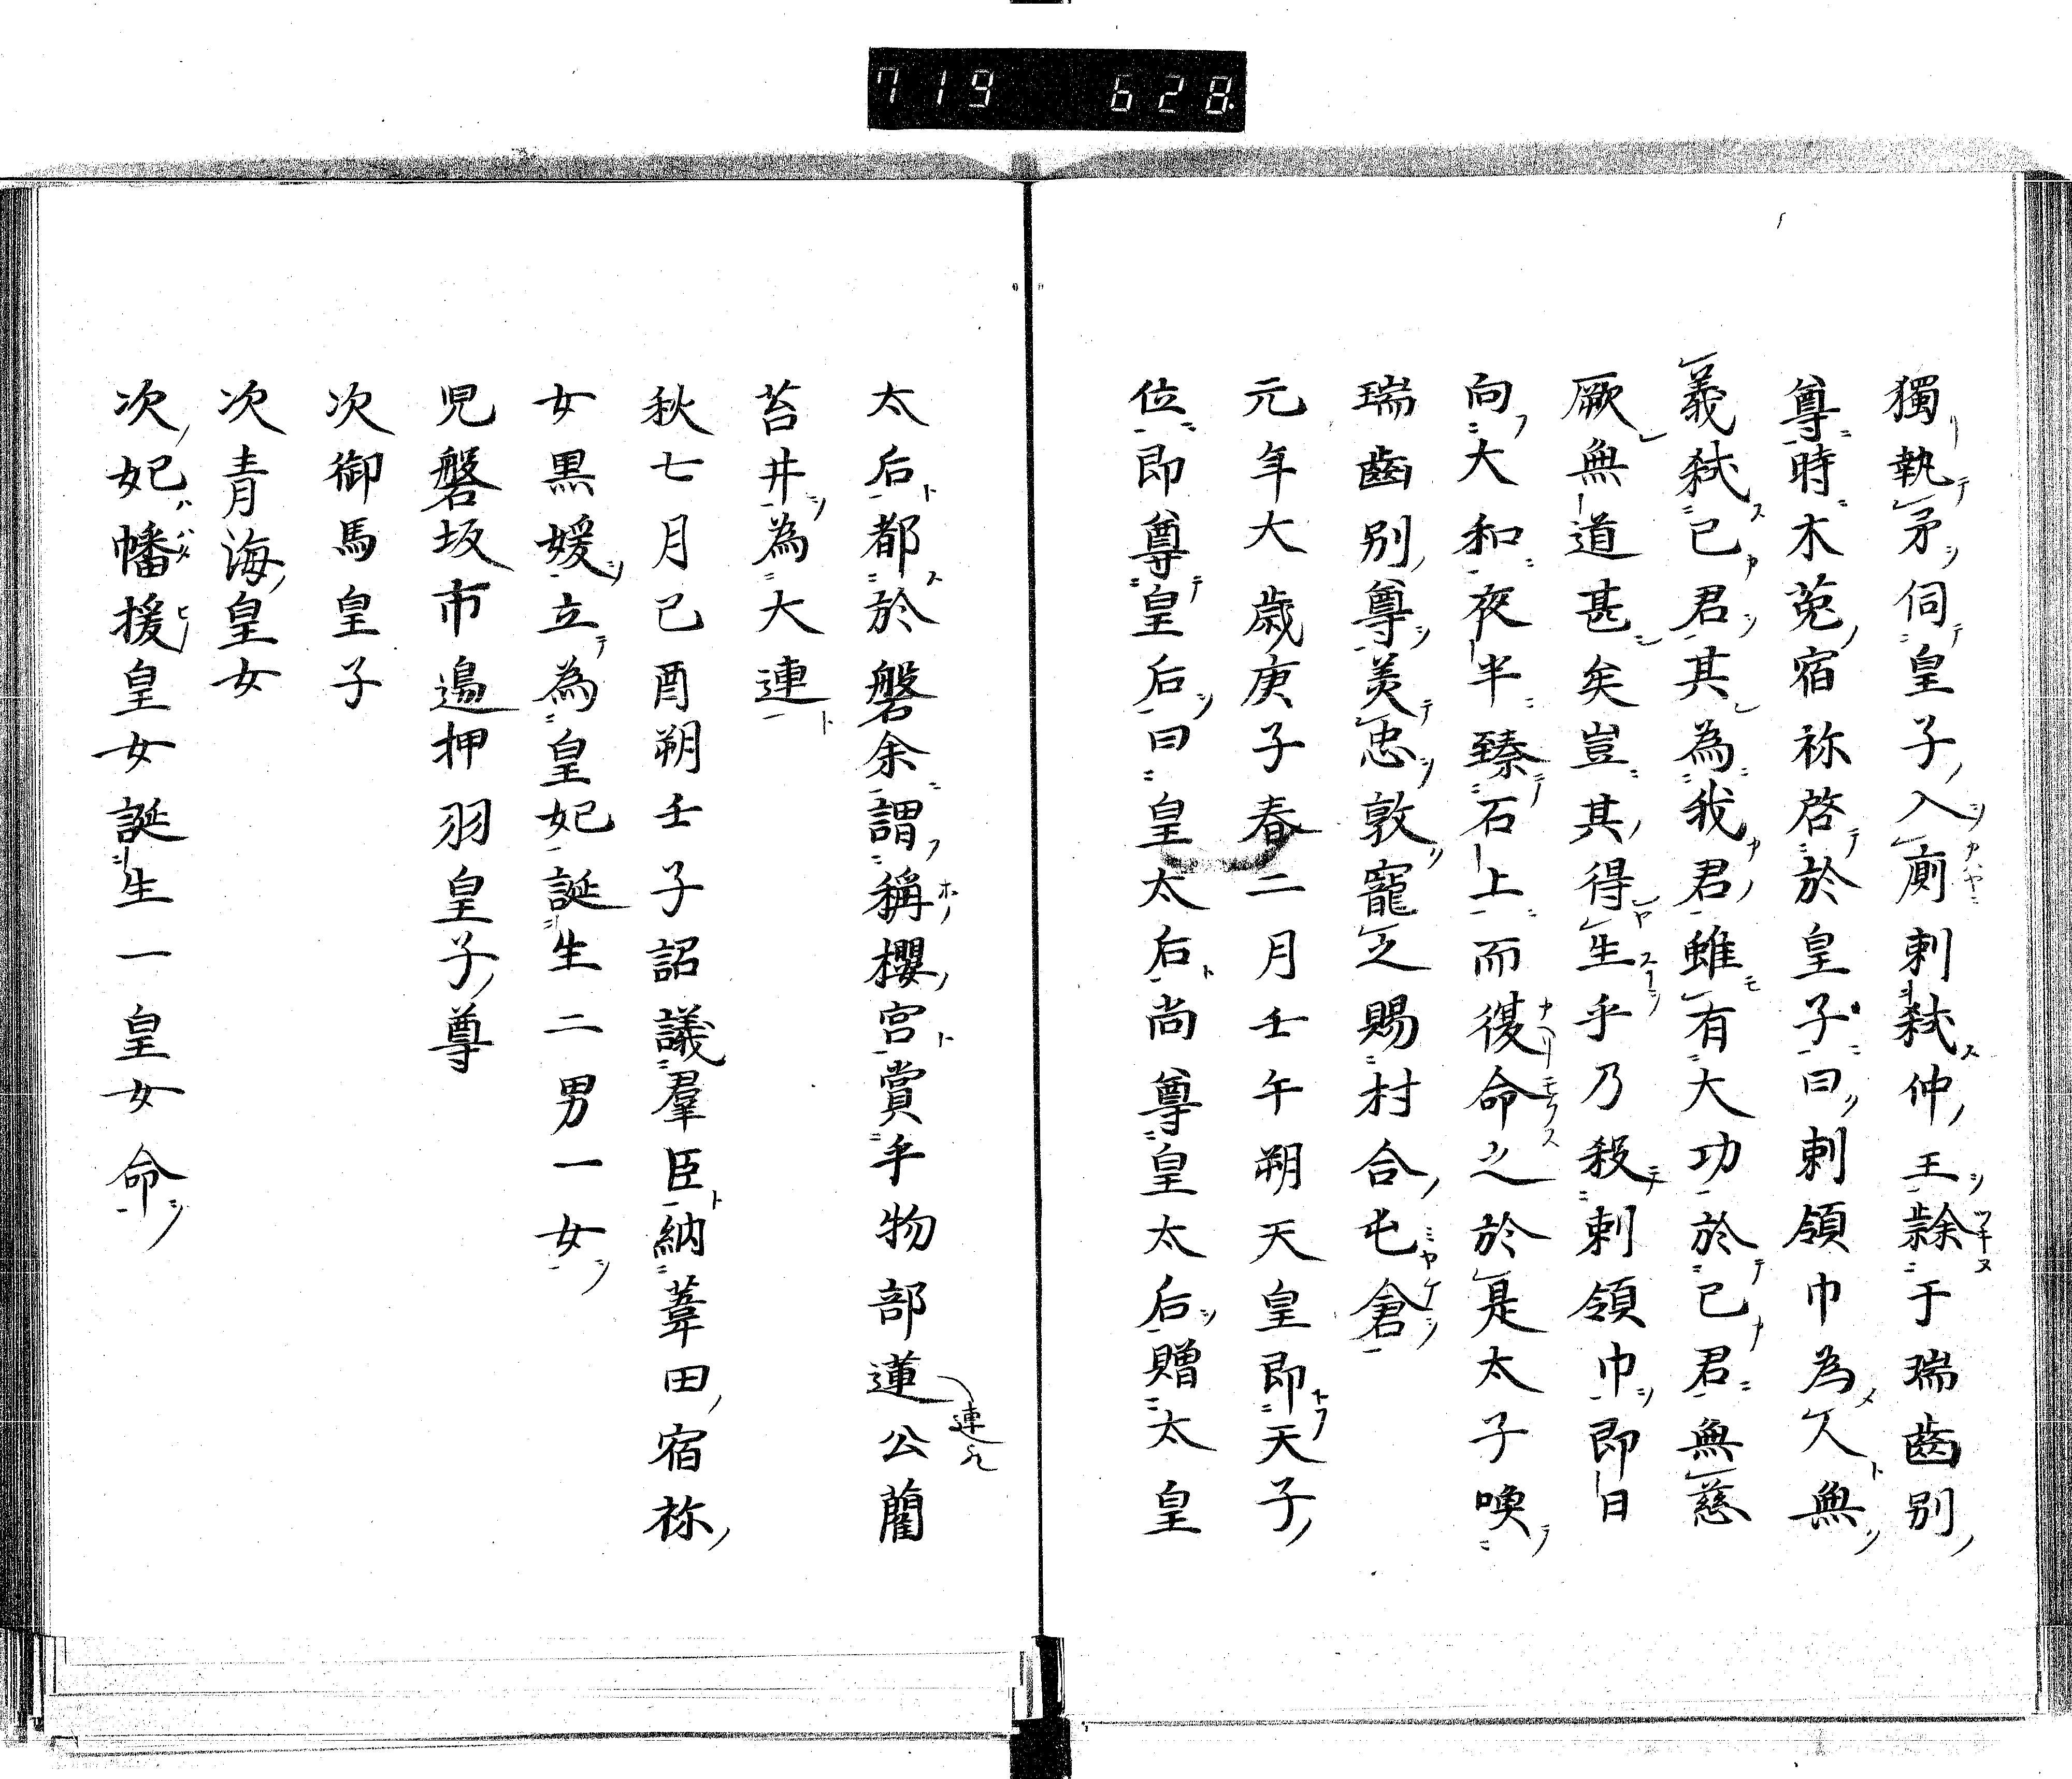 719 628
獨執矛伺皇子入廁刺弑仲王隸于瑞齒別
尊時木菟宿祢啓於皇子曰刺領巾為人無
義弑己君其為我君雖有大功於己君無慈
厥無道甚矣豈其得生乎乃殺刺領巾即日
向大和夜半臻石上而復命之於是太子喚
瑞齒別尊美忠敦寵之賜村合屯倉
元年大歲庚子春二月壬午朔天皇即天子
位即尊皇后曰皇太后尚尊皇太后贈太皇
太后都於磐余謂稱櫻宮賞乎物部蓮公藺
連
苔井為大連
秋七月己酉朔壬子詔議羣臣納葦田宿祢
女黒媛立為皇妃誕生二男一女
児磐坂市邊押羽皇子尊
次御馬皇子
次青海皇女
次妃幡援皇女誕生一皇女命